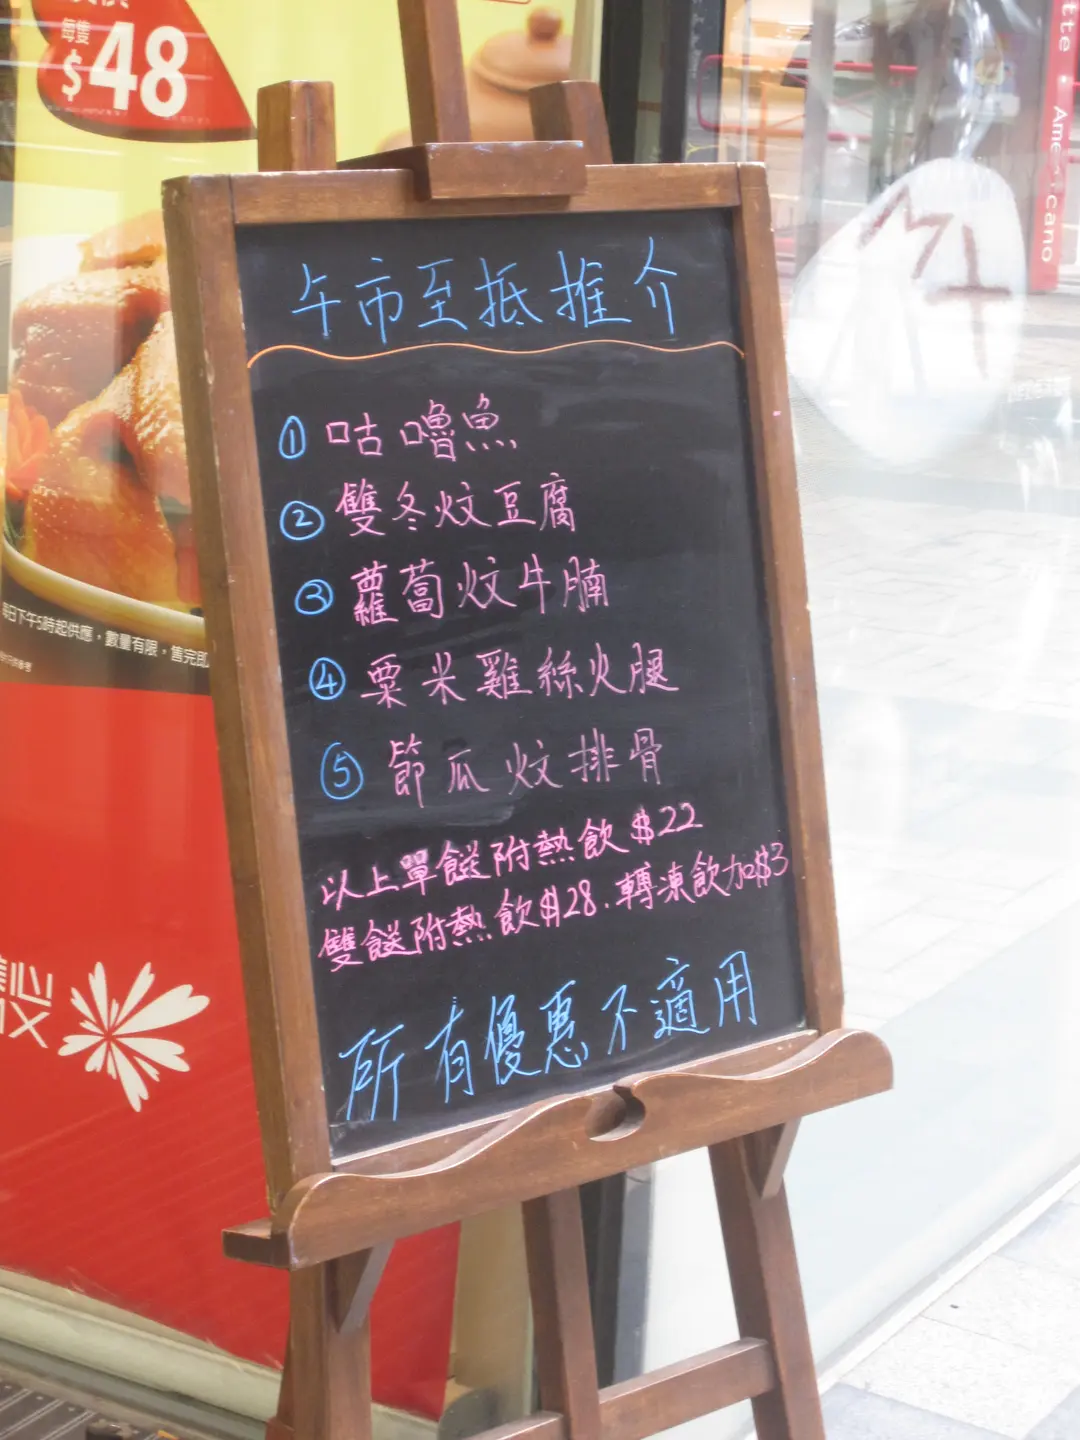 每隻
$48
午市至抵推介
① 咕嚕魚
② 雙冬炆豆腐
③ 蘿蔔炆牛腩
④ 粟米雞絲火腿
⑤ 節瓜炆排骨
以上單餸附熱飲 $22
雙餸附熱飲$28.轉凍飲加$3
所有優惠不適用
每日下午5時起供應，數量有限，售完即
Americano